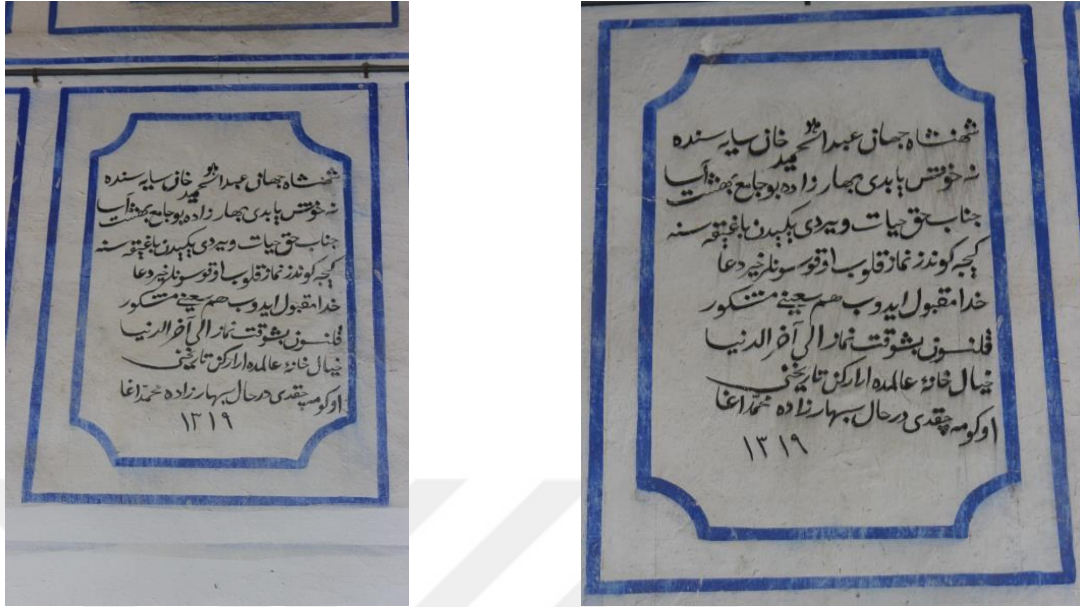 شهنشاه جهان عبدالحمید خان سایه سنده
نه خوش یابدی بهار زاده بو جامع بهشت آسا
جناب حق حیات ویردی یکیدن باغیقه سنه
کیجه کوندز نماز قلوب اوقوسونلر خیر دعا
خدا مقبول ایدوب هم سعینی مشکور
قلنسون بشوقت نماز الی آخر الدنیا
خیال خانۀ عالمده ارارکن تاریخنی
اوکومه چقدی درحال بهار زاده محمد اغا
١٣١٩
شهنشاه جهان عبدالحمید خان سایه سنده
نه خوش یابدی بهار زاده بو جامع بهشت آسا
جناب حق حیات ویردی یکیدن باغیقه سنه
کیجه کوندز نماز قلوب اوقوسونلر خیر دعا
خدا مقبول ایدوب هم سعینی مشکور
قلنسون بشوقت نماز الی آخر الدنیا
خیال خانۀ عالمده ارارکن تاریخنی
اوکومه چقدی درحال بهار زاده محمد اغا
١٣١٩